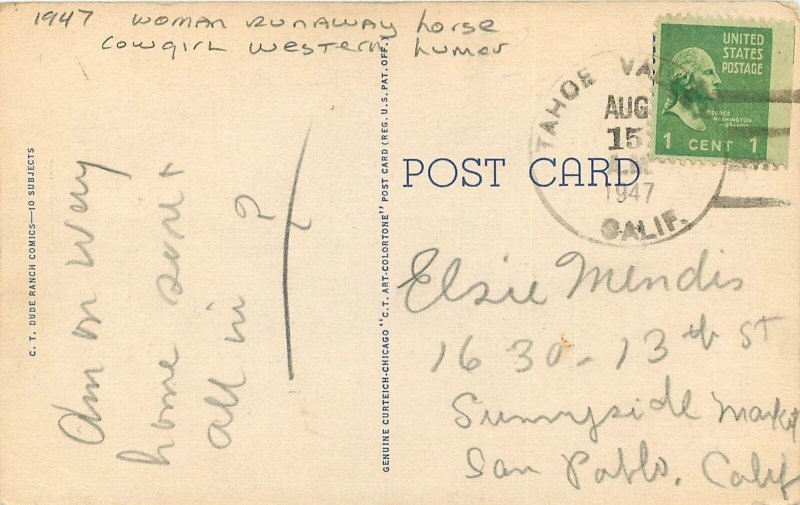 1947 WOMAN RUNAWAY horse
COWGIRL WESTERN humor
C. T. DUDE RANCH COMICS—10 SUBJECTS
Am on way
home sore +
all in
GENUINE CURTEICH-CHICAGO "C.T. ART-COLORTONE" POST CARD (REG. U.S. PAT. OFF.)
POST CARD
TAHOE VALLEY
AUG
15
A.M.
1947
CALIF.
UNITED
STATES
POSTAGE
GEORGE
WASHINGTON
1 CENT 1
Elsie Mendis
1630-13th St
Sunnyside Market
San Pablo, Calif